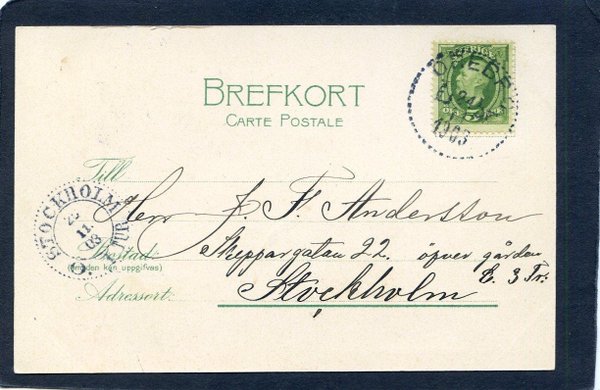 BREFKORT
CARTE POSTALE
SVERIGE
ÖREBRO
1903
Till
Herr J. F. Andersson
STOCKHOLM
11
03
Bostad:
Skeppargatan 22. öfver gården
(om den kan uppgifvas)
Ö. 3 Tr.
Adressort:
Stockholm